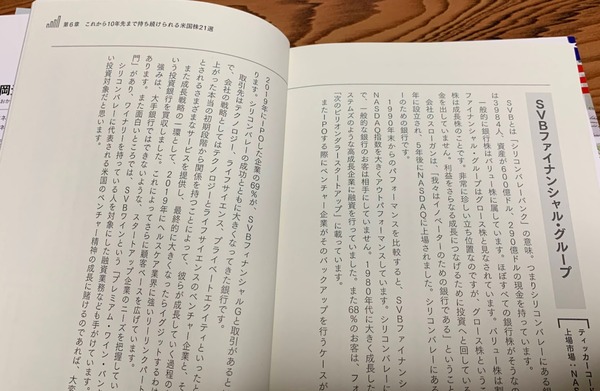 第6章 これから10年先まで持ち続けられる米国株21選
SVBファイナンシャル・グループ
ティッカーコード
上場市場:NAS
SVBとは「シリコンバレーバンク」の意味。つまりシリコンバレーにある銀
は3984人、資産が600億ドル、290億ドルの現金を持っています。
一般的に銀行株はバリュー株に属しています。ほぼすべての銀行株がそうなの
ファイナンシャル・グループはグロース株と見なされています。バリュー株と
株は成長株のことです。非常に珍しい立ち位置なのですが、グロース株という
金を出していません。利益をさらなる成長につなげるために投資へと回していま
会社のスローガンは、「我々はイノベーターのための銀行である」というこ
年に設立され、5年後にNASDAQに上場されました。シリコンバレーにあ
ーのための銀行です。
1990年末からのパフォーマンスを比較すると、SVBファイナンシャル
NASDAQ指数を大きくアウトパフォームしています。シリコンバレーに
で、一般的な銀行のお客は相手にしていません。1980年代に大きく成長した
ステムズのような高成長企業に融資を行っていました。また68%のお客は、フォ
「次のビリオンダラースタートアップ」に載っています。
またIPOする際にベンチャー企業がそのバックアップを行うケースが
2019年にIPOした企業の69%が、SVBファイナンシャルGと取引があると
ります。シリコンバレーの成功とともに大きくなってきた銀行です。
取引先はテクノロジー、ライフサイエンス、プライベートエクイティといった
で、会社の戦略としてはテクノロジーとライフサイエンスのベンチャー企業と、そ
上がった本当の初期段階から関係を持つことによって、彼らが成長していく過程の
とされるさまざまなサービスを提供し、最終的に大きくなったらイグジットするわ
また成長戦略の一環として、2019年にヘルスケア業界に強いリーリンクパート
いう投資銀行を買収しました。これによってさらに顧客ベースを広げています。
強みは、大手銀行ではできないような、スタートアップ企業のニーズを把握してい
あります。また面白いところでは、SVBワインという「プレミアム・ワイン・バン
門」があり、ワイナリーを持っている人を対象にした融資業務なども手がけています。
シリコンバレーに代表される米国のベンチャー精神の成長に賭けるのであれば、大変
い投資対象だと思います。